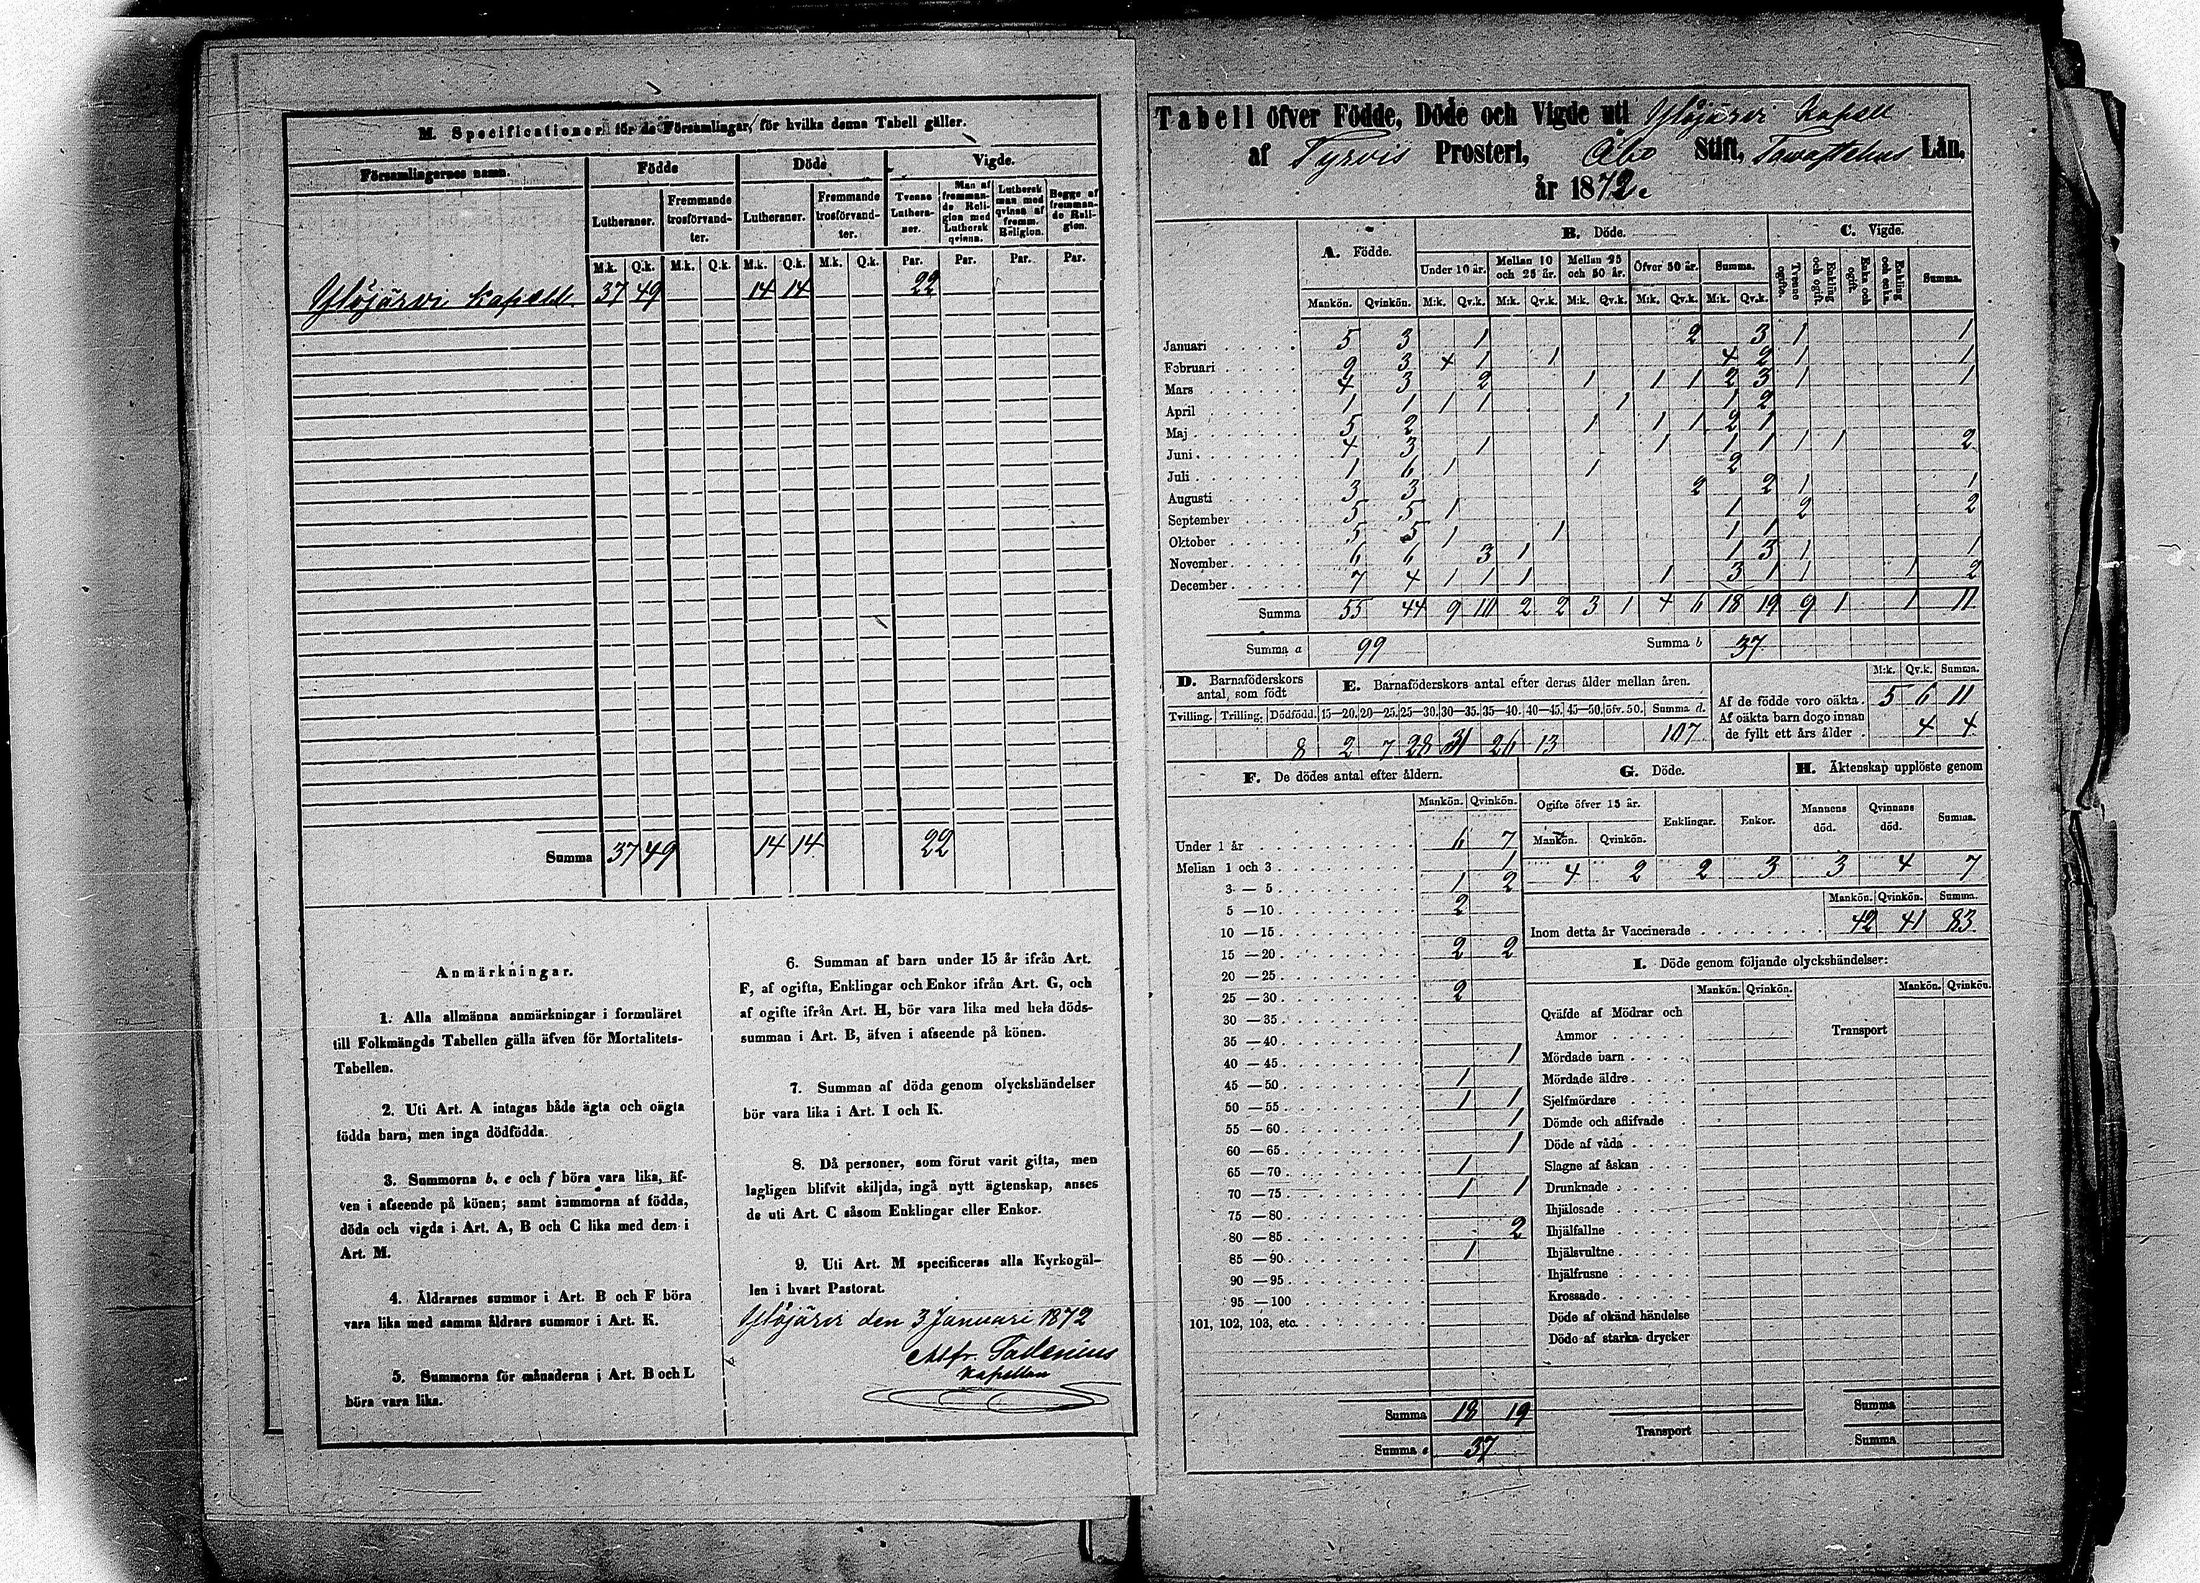 M. Specificationer för de Församlingar, för hvilka denna Tabell gäller.
Församlingarnes namn. Födde Döde Vigde.
Lutheraner. Fremmande trosförvandter. Lutheraner. Fremmande trosförvandter. Tvenne Lutheraner. Man af fremmande Religion med Luthersk qvinna. Luthersk man med qvinna af fremm. Religion. Begge af fremmande Religion.
M.k. Q.k. M.k. Q.k. M.k. Q.k. M.k. Q.k. Par. Par. Par. Par.
Ylöjärvi Kapell 37 49 14 14 22
Summa 37 49 14 14 22
Anmärkningar.
1. Alla allmänna anmärkningar i formuläret
till Folkmängds Tabellen gälla äfven för Mortalitets-
Tabellen.
2. Uti Art. A intagas både ägta och oägta
födda barn, men inga dödfödda.
3. Summorna b, e och f böra vara lika, äf-
ven i afseende på könen; samt summorna af födda,
döda och vigda i Art. A, B och C lika med dem i
Art. M.
4. Åldrarnes summor i Art. B och F böra
vara lika med samma åldrars summor i Art. K.
5. Summorna för månaderna i Art. B och L
böra vara lika.
6. Summan af barn under 15 år ifrån Art.
F, af ogifta, Enklingar och Enkor ifrån Art. G, och
af ogifte ifrån Art. H, bör vara lika med hela döds-
summan i Art. B, äfven i afseende på könen.
7. Summan af döda genom olyckshändelser
bör vara lika i Art. I och K.
8. Då personer, som förut varit gifta, men
lagligen blifvit skiljda, ingå nytt ägtenskap, anses
de uti Art. C såsom Enklingar eller Enkor.
9. Uti Art. M specificeras alla Kyrkogäl-
len i hvart Pastorat.
Ylöjärvi den 3 Januari 1872
Alfr. Salenius
Kapellan
Tabell öfver Födde, Döde och Vigde uti Ylöjärvi Kapell
af Tyrvis Prosteri, Åbo Stift, Tawastehus Län,
år 1872.
A. Födde. B. Döde. C. Vigde.
Under 10 år. Mellan 10 och 25 år. Mellan 25 och 50 år. Öfver 50 år. Summa. Tvenne ogifte. Enkling och ogift. Enka och ogift. Enkling och enka. Summa.
Mankön. Qvinkön. M:k. Qv.k. M:k. Qv.k. M:k. Qv.k. M:k. Qv.k. M:k. Qv.k.
Januari 5 3 1 2 3 1 1
Februari 9 3 4 1 1 4 2 1 1
Mars 4 3 2 1 1 1 2 3 1 1
April 1 1 1 1 1 1 2
Maj 5 2 1 1 1 2 1
Juni 4 3 1 1 1 1 1 1 2
Juli 1 6 1 1 2
Augusti 3 3 2 2 1 1
September 5 5 1 1 2 2
Oktober 5 5 1 1 1 1
November 6 6 3 1 1 3 1 1
December 7 4 1 1 1 1 3 1 1 1 2
Summa 55 44 9 10 2 2 3 1 4 6 18 19 9 1 1 11
Summa a 99 Summa b 37
D. Barnaföderskors antal, som födt
Tvilling. Trilling. Dödfödd.
8
E. Barnaföderskors antal efter deras ålder mellan åren.
15—20. 20—25. 25—30. 30—35. 35—40. 40—45. 45—50. öfv. 50. Summa d.
2 7 28 31 26 13 107
M:k. Qv.k. Summa.
Af de födde voro oäkta. 5 6 11
Af oäkta barn dogo innan
de fyllt ett års ålder 4 4
F. De dödes antal efter åldern.
Mankön. Qvinkön.
Under 1 år 6 7
Mellan 1 och 3 1
3 — 5 1 2
5 — 10 2
10 — 15
15 — 20 2 2
20 — 25
25 — 30 2
30 — 35
35 — 40
40 — 45 1
45 — 50 1
50 — 55 1 1
55 — 60 1
60 — 65 1
65 — 70 1
70 — 75 1 1
75 — 80
80 — 85 2
85 — 90 1
90 — 95
95 — 100
101, 102, 103, etc.
Summa 18 19
Summa e 37
G. Döde.
Ogifte öfver 15 år. Enklingar. Enkor.
Mankön. Qvinkön.
4 2 2 3
H. Äktenskap upplöste genom
Mannens död. Qvinnans död. Summa.
3 4 7
Mankön. Qvinkön. Summa.
Inom detta år Vaccinerade 42 41 83
I. Döde genom följande olyckshändelser:
Mankön. Qvinkön. Mankön. Qvinkön.
Qväfde af Mödrar och
Ammor Transport
Mördade barn
Mördade äldre
Sjelfmördare
Dömde och aflifvade
Döde af våda
Slagne af åskan
Drunknade
Ihjälosade
Ihjälfallne
Ihjälsvultne
Ihjälfrusne
Krossade
Döde af okänd händelse
Döde af starka drycker
Summa
Transport
Summa